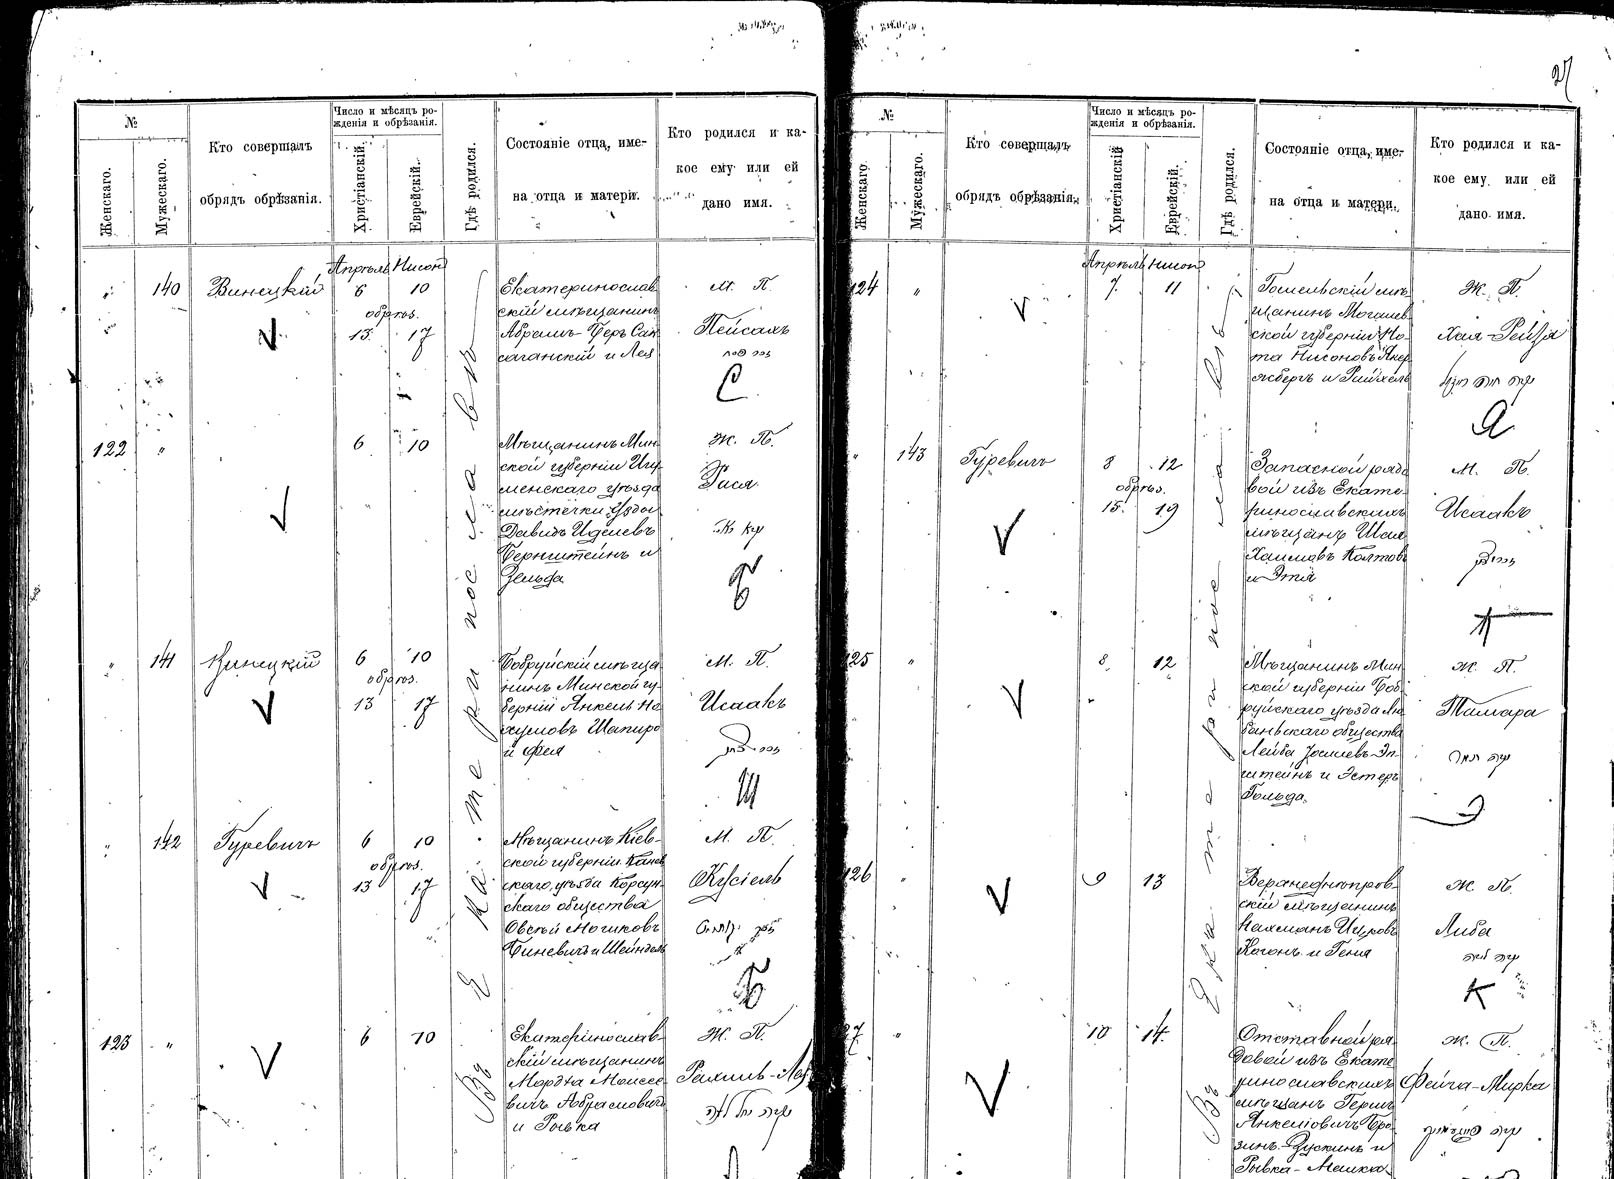 27
№
Женскаго.
Мужескаго.
Кто совершалъ
обрядъ обрѣзанія.
Число и мѣсяцъ ро-
жденія и обрѣзанія.
Христіанскій.
Еврейскій.
Гдѣ родился.
Состояніе отца, име-
на отца и матери.
Кто родился и ка-
кое ему или ей
дано имя.
Въ Екатеринославѣ
Апрѣль Нисонъ
140 Винецкій 6 10
обрѣз.
13 17
Екатеринослав
скій мѣщанинъ
Абрамъ-Беръ Сак
саганскій и Лея
М. П.
Пейсахъ
С
122 " 6 10
Мѣщанинъ Мин
ской губерніи Игу
менскаго уѣзда
мѣстечки Узды
Давидъ Иделевъ
Бернштейнъ и
Зельда
Ж. П.
Рася
Б
" 141 Винецкій 6 10
обрѣз.
13 17
Бобруйскій мѣща
нинъ Минской гу-
берніи Янкель На
хумовъ Шапиро
и Фея
М. П.
Исаакъ
Ш
" 142 Гуревичъ 6 10
обрѣз.
13 17
Мѣщанинъ Кіев-
ской губерніи Канев
скаго уѣзда Корсун-
скаго общества
Овсѣй
Биневичъ и Шейндель
М. П.
Кусіель
Б
123 " 6 10
Екатеринослав-
скій мѣщанинъ
Мордка Моисее-
вичъ Абрамовичъ
и Рывка
Ж. П.
Рахиль-Лея
№
Женскаго.
Мужескаго.
Кто совершалъ
обрядъ обрѣзанія.
Число и мѣсяцъ ро-
жденія и обрѣзанія.
Христіанскій
Еврейскій.
Гдѣ родился.
Состояніе отца, име-
на отца и матери.
Кто родился и ка-
кое ему или ей
дано имя.
Въ Екатеринославѣ
Апрѣль Нисонъ
124 " 7 11
Гомельскій мѣ-
щанинъ Могилев-
ской губерніи Но-
та Нисоновъ
и Райхель
Ж. П.
Хая-Рейзя
Я
" 143 Гуревичъ 8 12
обрѣз.
15 19
Запасной рядо
вой изъ Екате-
ринославскихъ
мѣщанъ Шая
Хаимовъ Колтовъ
и Этя
М. П.
Исаакъ
125 " 8 12
Мѣщанинъ Мин
ской губерніи Боб
руйскаго уѣзда Лю
баньскаго общества
Лейба Эп-
штейнъ и Эстеръ
Гольда
Ж. П.
Тамара
Э
126 " 9 13
Верхнеднѣпров-
скій мѣщанинъ
Нахманъ Ицковъ
Когонъ и Геня
Ж. П.
Либа
К
127 " 10 14
Отставной ря
довой изъ Екате
ринославскихъ
мѣщанъ Гершъ
Янкеліовичъ Бро-
зинъ-Зускинъ и
Рывка-Малка
Ж. П.
Фейга-Мирка